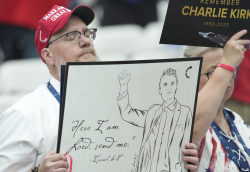 REMEMBER
CHARLIE KIRK
1993-2025
"Here I am
Lord, send me."
Isaiah 6:8